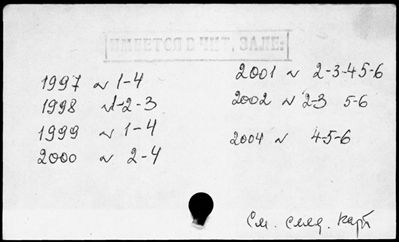 ИМЕЕТСЯ В ЧИТ. ЗАЛЕ:
1997 N 1-4
1998 N 1-2-3
1999 N 1-4
2000 N 2-4
2001 N 2-3-4 5-6
2002 N 2-3 5-6
2004 N 4-5-6
См. след. карт